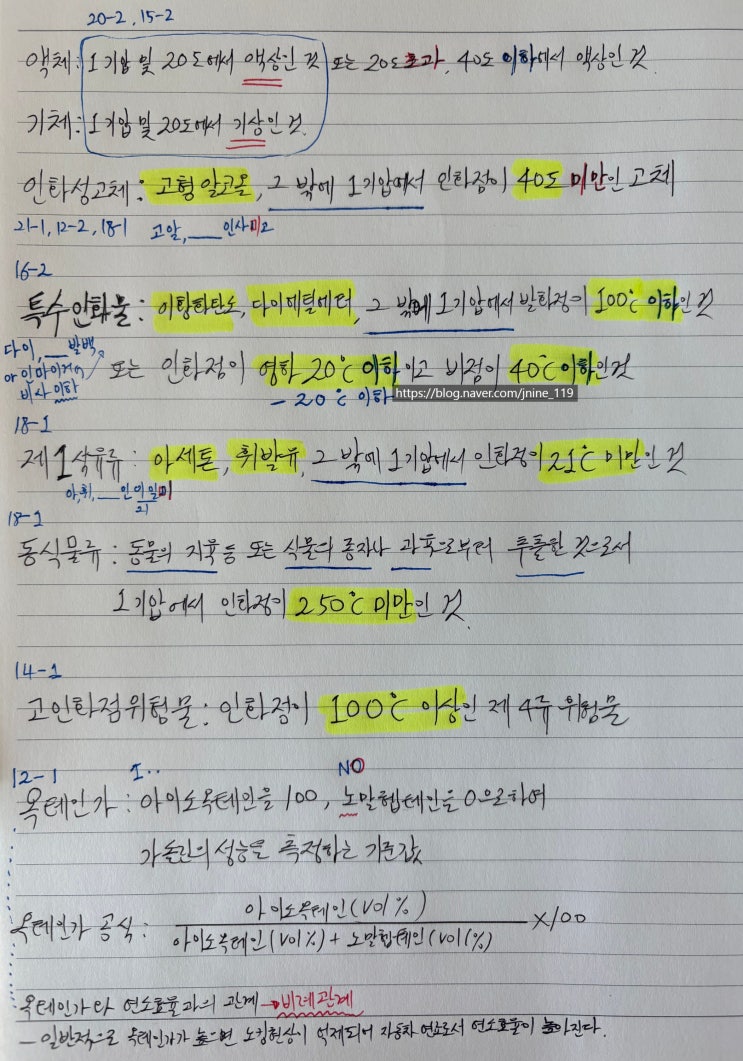 20-2, 15-2
액체: 1기압 및 20도에서 액상인 것 또는 20도 초과, 40도 이하에서 액상인 것.
기체: 1기압 및 20도에서 기상인 것.
인화성고체: 고형알코올, 그 밖에 1기압에서 인화점이 40도 미만인 고체
21-1, 12-2, 18-1 고알, ___ 인사미고
16-2
특수인화물: 이황화탄소, 다이에틸에터, 그 밖에 1기압에서 발화점이 100℃ 이하인 것
다이, __발백
또는 인화점이 영하 20℃ 이하이고 비점이 40℃ 이하인것
비사이하
-20℃ 이하
https://blog.naver.com/jnine_119
18-1
제1석유류: 아세톤, 휘발유, 그 밖에 1기압에서 인화점이 21℃ 미만인 것
아,휘, __인이일미
21
18-1
동식물류: 동물의 지육 등 또는 식물의 종자나 과육으로부터 추출한 것으로서
1기압에서 인화점이 250℃ 미만인 것.
14-1
고인화점위험물: 인화점이 100℃ 이상인 제4류 위험물
12-1 I.. NO
옥테인가: 아이소옥테인을 100, 노말헵테인을 0으로하여
가솔린의 성능을 측정하는 기준값
아이소옥테인(vol%)
옥테인가 공식: ×100
아이소옥테인(vol%) + 노말헵테인(vol(%)
옥테인가와 연소효율과의 관계→비례관계
- 일반적으로 옥테인가가 높으면 노킹현상이 억제되어 자동차 연료로서 연소효율이 높아진다.